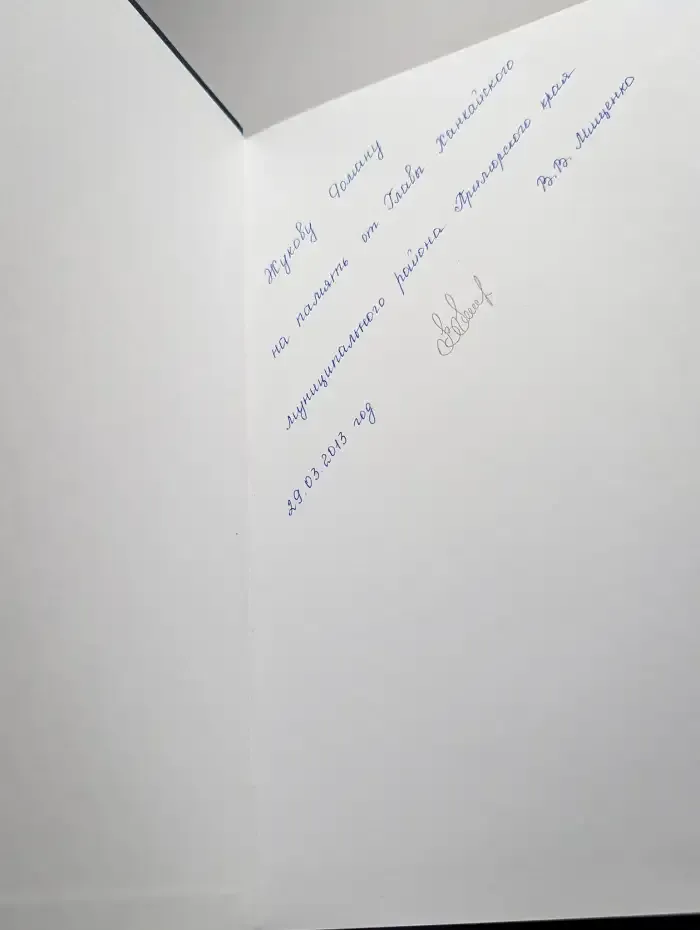 Жукову Роману
на память от Главы Ханкайского
муниципального района Приморского края
В.В. Мищенко
29.03.2013 год